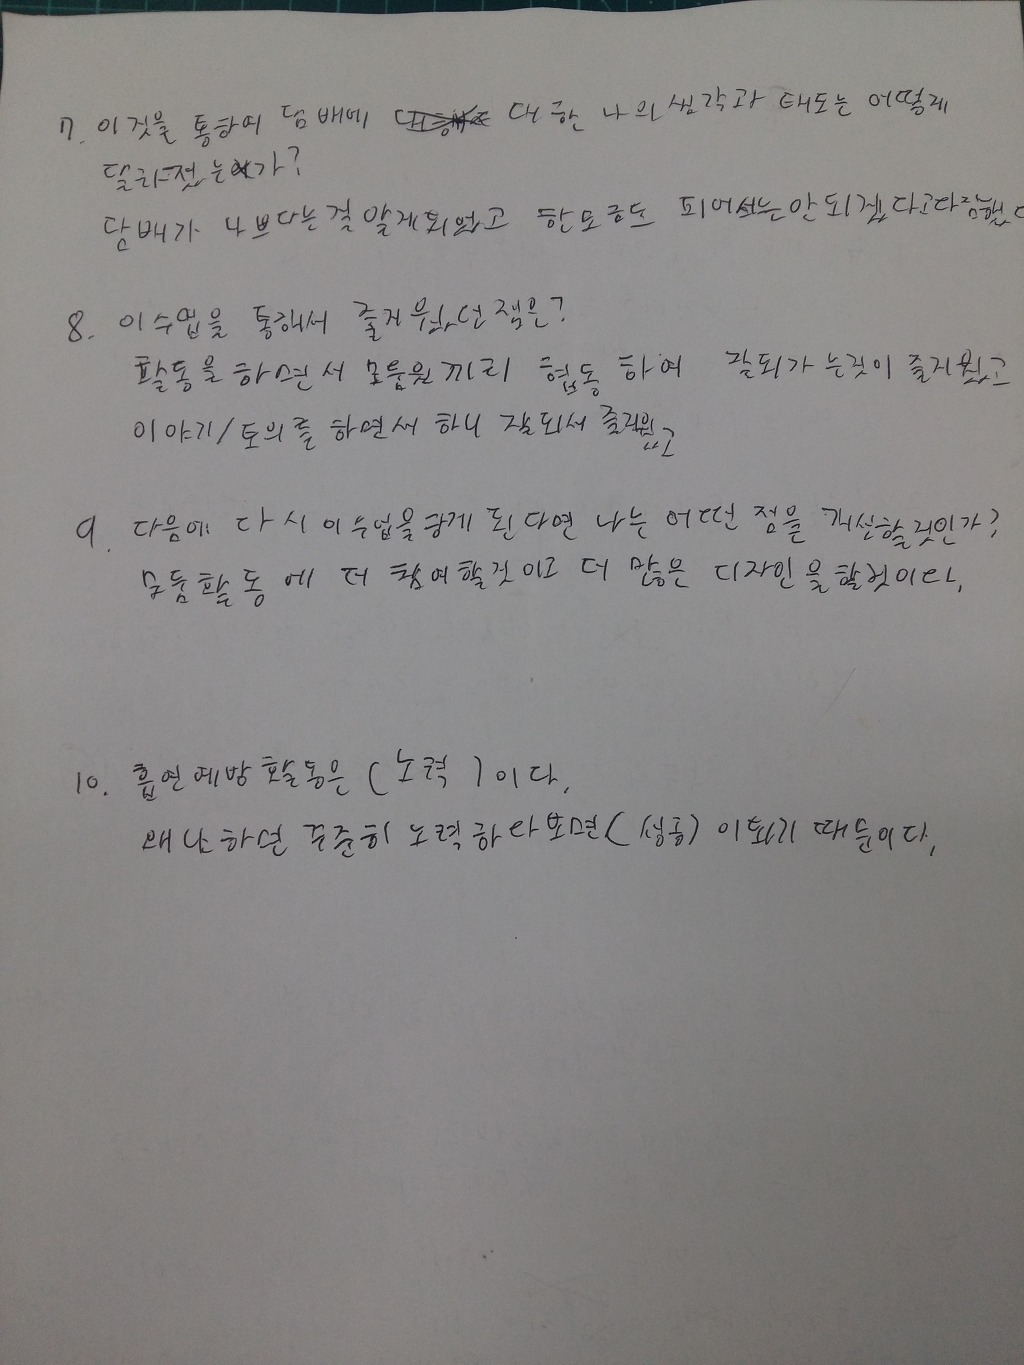 7. 이것을 통하여 담배에 대한 나의 생각과 태도는 어떻게
달라졌는가?
담배가 나쁘다는걸 알게되었고 한모금도 피어서는안되겠다고다짐했다
8. 이수업을 통해서 즐거웠던점은?
활동을 하면서 모둠원끼리 협동하여 잘되가는것이 즐거웠고
이야기/토의를 하면서 하니 잘되서 즐거웠고
9. 다음에 다시이수업을하게 된다면 나는 어떤 점을 개선할것인가?
모둠활동에 더 참여할것이고 더 많은 디자인을할것이다.
10. 흡연예방활동은 (노력)이다.
왜냐하면 꾸준히 노력하다보면(성공)이되기 때문이다.